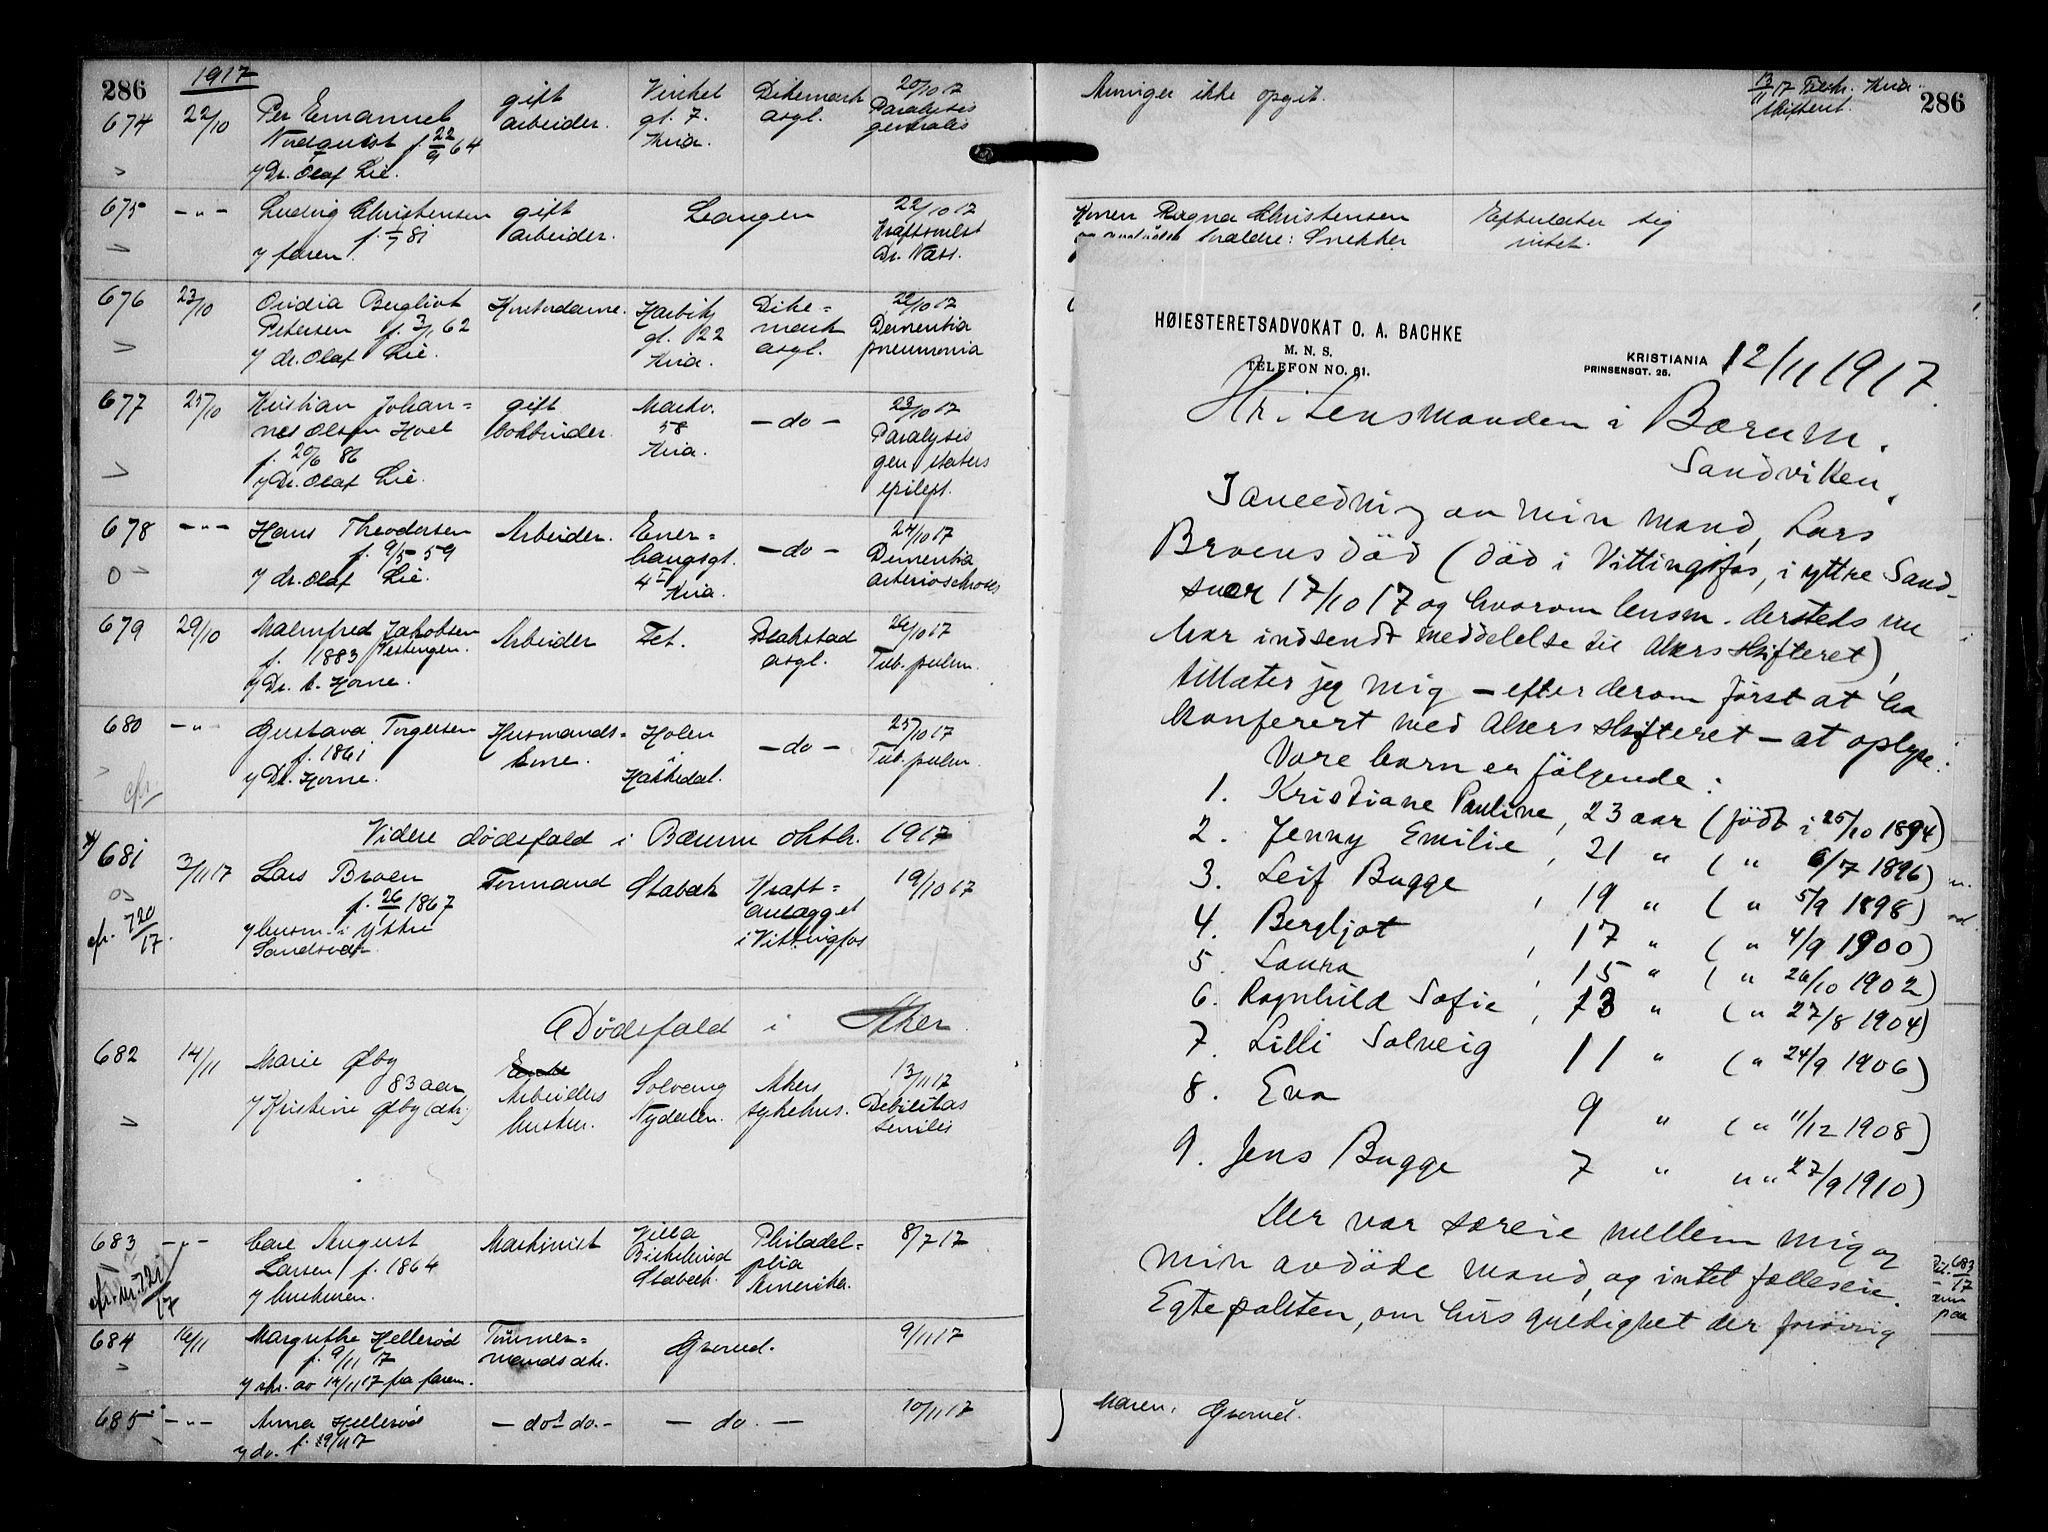 286
1917
674
22/10
Per Emanuel
Nordquist f. 22/9 64
v/ Dr. Olaf Lie.
gift
arbeider.
Vinkel
gt. 7.
Kria.
Dikemark
asyl.
20/10 17
Paralysis
generalis
675
— " —
Ludvig Christensen
v/ faren.
gift
arbeider.
Leangen
22/10 17
Dr. Næss.
676
23/10
Ovidia Bergliot
Petersen f. 3/1 62
v/ dr. Olaf Lie.
Husbestyrerinde.
gt. 22
Kria.
Dike=
mark
asyl.
22/10 17
Dementia
pneumonia
677
25/10
Kristian Johan=
nes Olsen Hoel
f. 20/6 86
v/ Dr. Olaf Lie.
gift
bokbinder.
Markv.
58
Kria.
— do —
23/10 17
Paralysis
gen. status
epilept.
678
— " —
Hans Theodorsen
f. 9/5 59
v/ dr. Olaf Lie.
Arbeider.
Ener=
haugsgt.
4 I
Kria.
— do —
24/10 17
Dementia
arterioschroses
679
29/10
Malmfred Jakobsen
f. 1883 Vestengen.
v/ Dr. Horne.
Arbeider
Fet.
Blakstad
asyl.
26/10 17
Tub. pulm.
680
— " —
Gustava Torgersen
f. 1861
v/ Dr. Horne.
cfr
Husmands=
kone.
Holen
i
Hakkedal.
— do —
25/10 17
Tub. pulm.
Videre dødsfald i Bærum oktbr. 1917
681
3/11 17
Lars Broen
f. 26/ 1867
v/ lensm. i Ytre
Sandsvær
cfr. 720/17.
Formand
Stabæk
Kraft=
anlægget
i Vittingfos
19/10 17
Dødsfald i Aker
682
14/11
Marie Øfby
83 aar
v/ Kristine Øfby (dtr.)
Arbeiders
Solveng
Nydalen.
Akers
sykehus.
13/11 17
Debilitas
senilis
683
— " —
Carl August
Larsen f. 1864
v/ hustruen.
cfr. nr. 721/17
Maskinist
Villa
Birkelund
Stabæk.
Philadel=
phia
Amerika.
8/7 17
684
16/11
Margrethe Hellerød
f. 9/11 17
v/ skr. av 14/11 17 fra faren.
Tømmer=
mands dtr.
Grorud.
9/11 17
685
— " —
Anna Hellerød
v/ do. f. 9/11 17
— do do. —
— do. —
10/11 17
Arvinger ikke opgit.
13/11 17 Tilskr. Kria.
Skifteret.
286
Konen Ragna Christensen
forældre: Snekker
Efterlater sig
intet.
HØIESTERETSADVOKAT O. A. BACHKE
M. N. S.
TELEFON NO. 61.
KRISTIANIA
PRINSENSGT. 25.
12/11 1917.
Hr. Lensmanden i Bærum.
Sandviken.
I anledning av min mand, Lars
Broens död (död i Vittingfos, i yttre Sand-
svær 17/10 17 og hvorom lensm. dersteds nu
har indsendt meddelelse til Akers skifteret)
tillater jeg mig — efter derom først at ha
konferert med Akers skifteret — at oplyse:
Vore barn er følgende:
1. Kristiane Pauline, 23 aar (født i 25/10 1894)
2. Jenny Emilie, 21 " ( " 6/7 1896)
3. Leif Bugge, 19 " ( " 5/9 1898)
4. Bergljot, 17 " ( " 4/9 1900)
5. Laura, 15 " ( " 26/10 1902)
6. Ragnhild Sofie, 13 " ( " 27/8 1904)
7. Lilli Solveig 11 " ( " 24/9 1906)
8. Eva 9 " ( " 11/12 1908)
9. Jens Bugge 7 " " " 27/9 1910)
Der var særeie mellem mig og
min avdöde mand, og intet fælleseie.
Egtepakten, om hvis gyldighet der forøvrig
683
17
paa
Maren, Grorud.